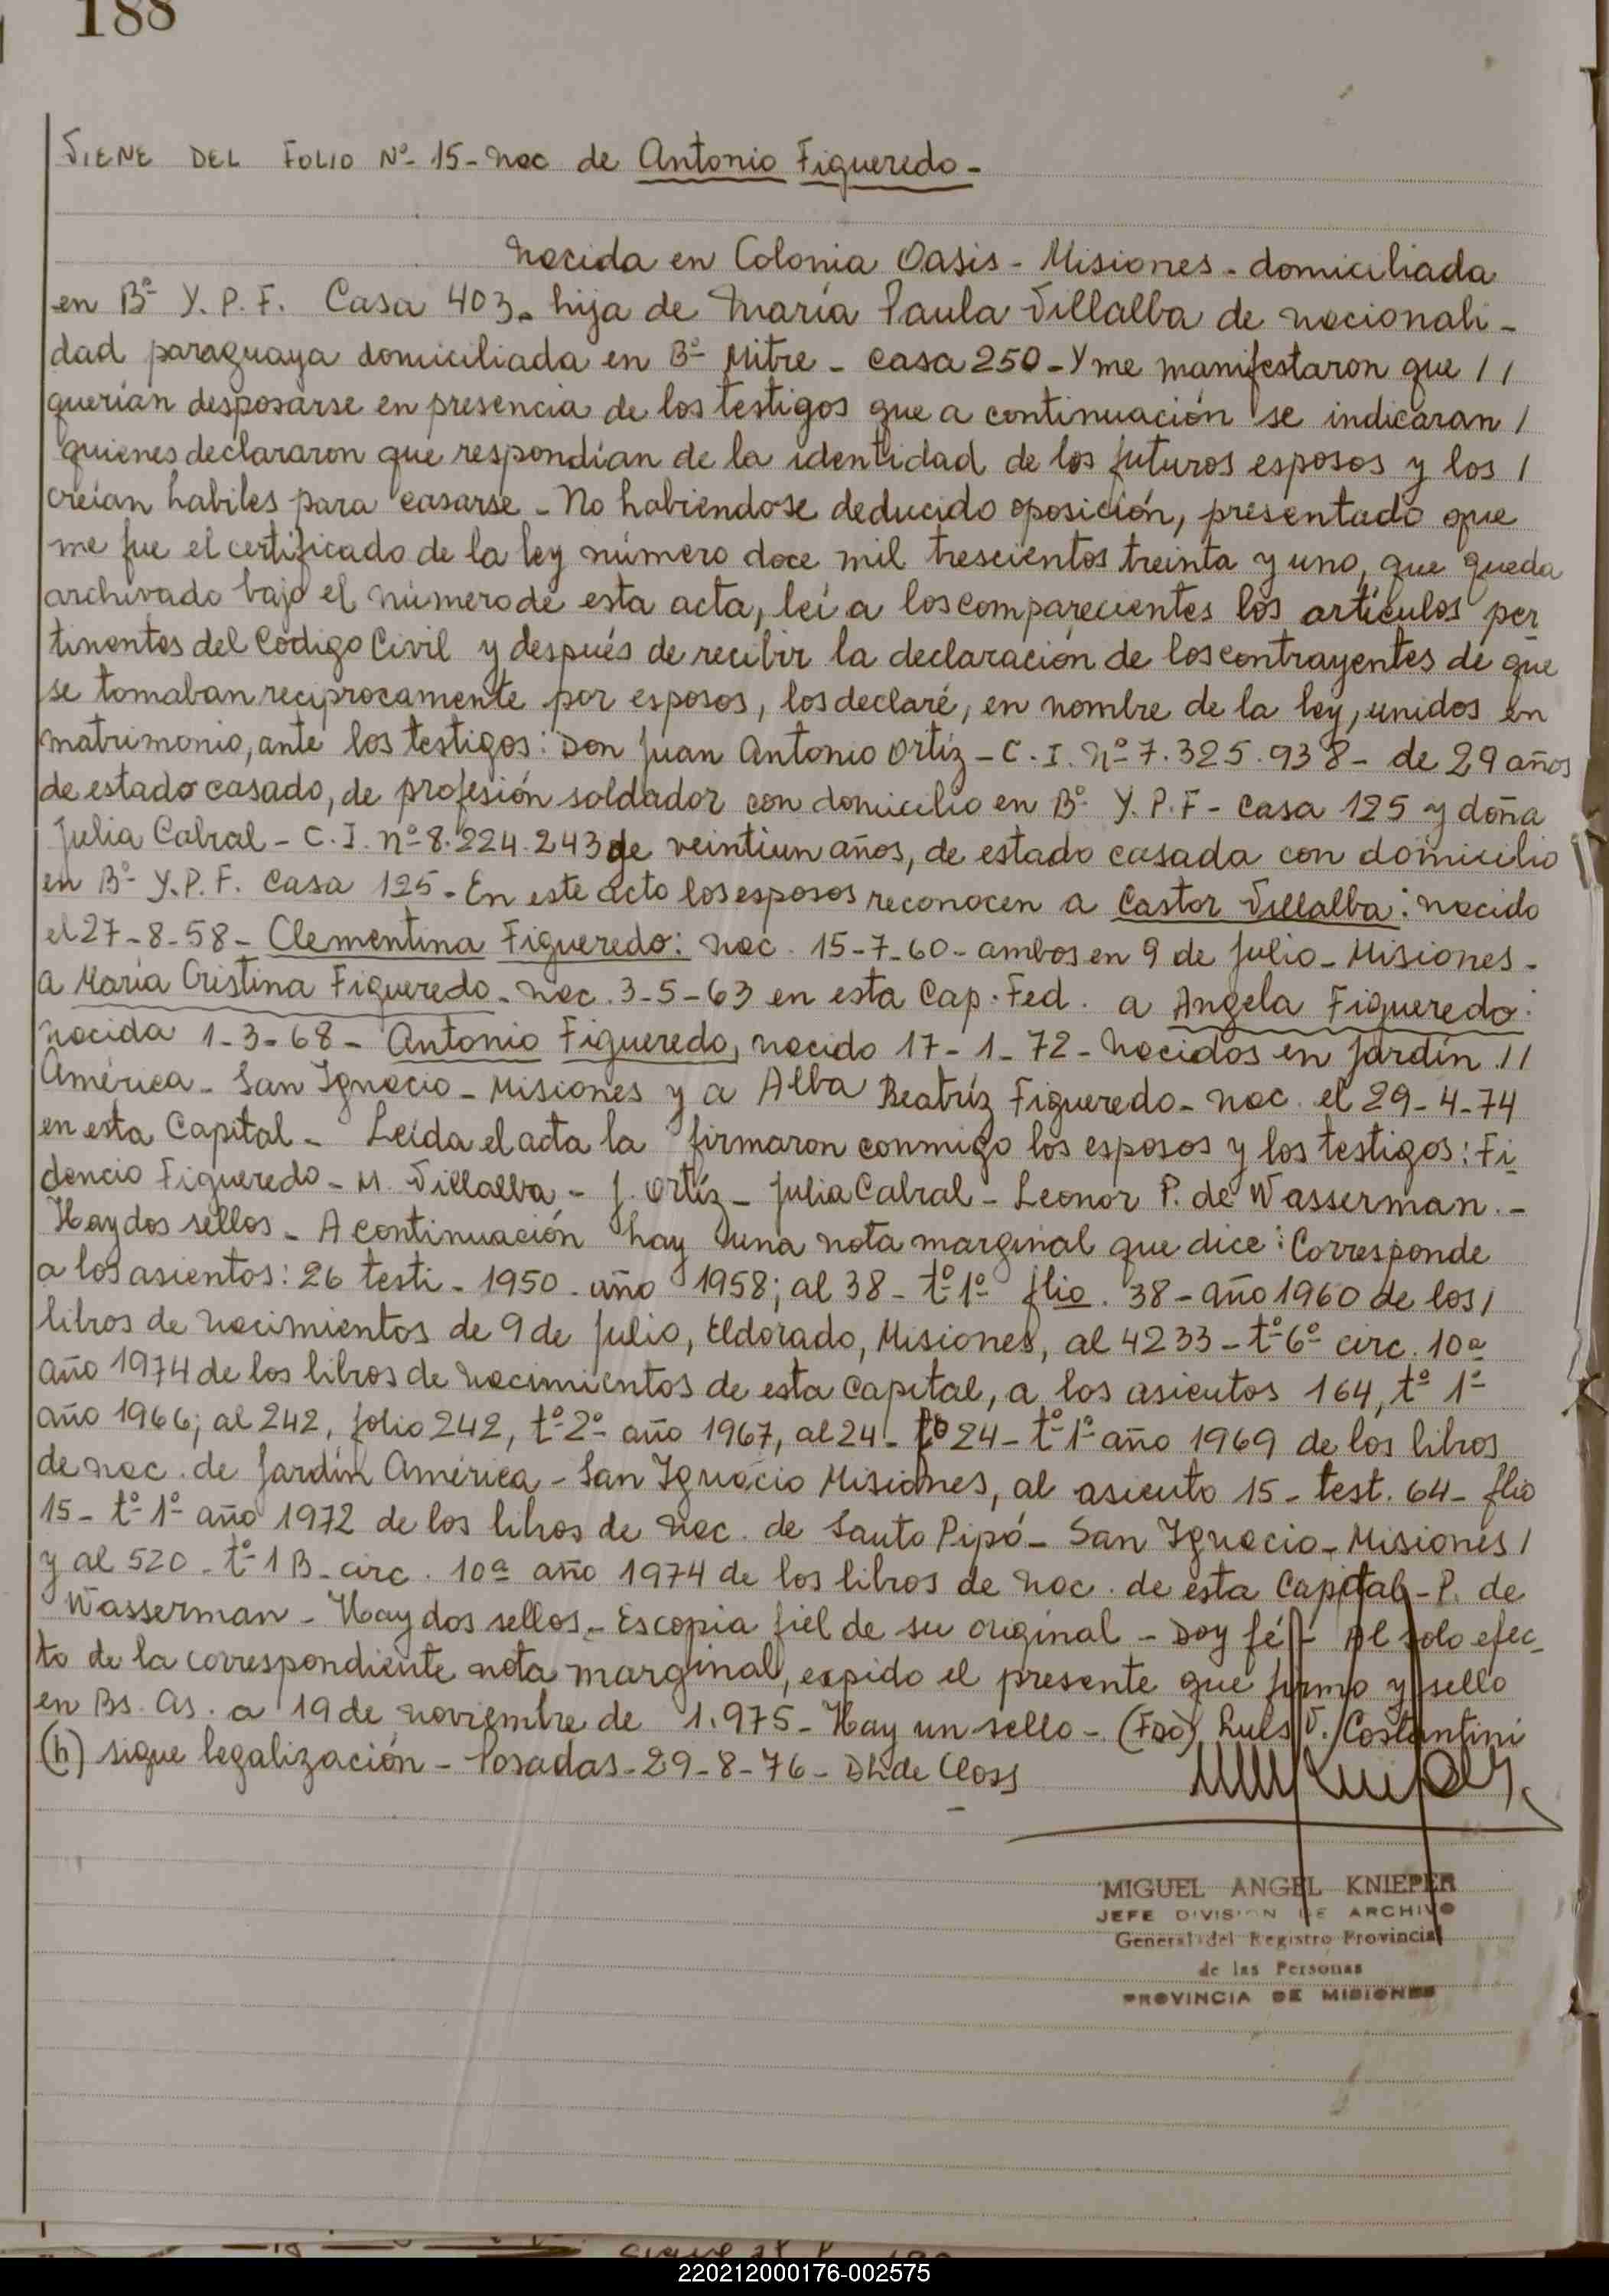 188
VIENE DEL FOLIO Nº 15 - nac de Antonio Figueredo -
nacida en Colonia Oasis - Misiones - domiciliada
en Bº Y. P. F. Casa 403. hija de María Paula Villalba de nacionali-
dad paraguaya domiciliada en Bº Mitre - casa 250 - Y me manifestaron que //
querían desposarse en presencia de los testigos que a continuación se indicaran /
quienes declararon que respondían de la identidad de los futuros esposos y los /
creían habiles para casarse - No habiendose deducido oposición, presentado que
me fue el certificado de la ley número doce mil trescientos treinta y uno, que queda
archivado bajo el número de esta acta, leí a los comparecientes los artículos per
tinentes del Código Civil y después de recibir la declaración de los contrayentes de que
se tomaban reciprocamente por esposos, los declaré, en nombre de la ley, unidos en
matrimonio, ante los testigos: Don Juan Antonio Ortíz - C. I. Nº 7.325.938 - de 29 años
de estado casado, de profesión soldador con domicilio en Bº Y. P. F - casa 125 y doña
Julia Cabral - C. I. nº 8.224.243 de veintiun años, de estado casada con domicilio
en Bº Y. P. F. casa 125 - En este acto los esposos reconocen a Castor Villalba: nacido
el 27-8-58 - Clementina Figueredo: nac. 15-7-60 - ambos en 9 de Julio - Misiones -
a María Cristina Figueredo - nac. 3-5-63 en esta Cap. Fed. a Angela Figueredo:
nacida 1-3-68 - Antonio Figueredo, nacido 17-1-72 - nacidos en Jardín //
América - San Ignacio - Misiones y a Alba Beatríz Figueredo - nac. el 29-4-74
en esta Capital - Leída el acta la firmaron conmigo los esposos y los testigos: Fi
dencio Figueredo - M. Villalba - J. Ortíz - Julia Cabral - Leonor P. de Wasserman. -
Hay dos sellos - A continuación hay una nota marginal que dice: Corresponde
a los asientos: 26 testi - 1950 - año 1958; al 38 - tº 1º flio. 38 - año 1960 de los /
libros de nacimientos de 9 de Julio, Eldorado, Misiones, al 4233 - tº 6º circ. 10ª
año 1974 de los libros de nacimientos de esta capital, a los asientos 164, tº 1º
año 1966; al 242, folio 242, tº 2º año 1967, al 24 - fº 24 - tº 1º año 1969 de los libros
de nac. de Jardín América - San Ignacio Misiones, al asiento 15 - test. 64 - flio
15 - tº 1º año 1972 de los libros de nac. de Santo Pipó - San Ignacio - Misiones /
y al 520 - tº 1 B - circ. 10ª año 1974 de los libros de nac. de esta Capital - P. de
Wasserman - Hay dos sellos - Es copia fiel de su original - Doy fé - Al solo efec-
to de la correspondiente nota marginal, expido el presente que firmo y sello
en Bs. As. a 19 de noviembre de 1.975 - Hay un sello - (Fdo) Luis V. Costantini
(h) sigue legalización - Posadas - 29-8-76 - de Closs
MIGUEL ANGEL KNIEPER
JEFE DIVISION DE ARCHIVO
General del Registro Provincial
de las Personas
PROVINCIA DE MISIONES
220212000176-002575